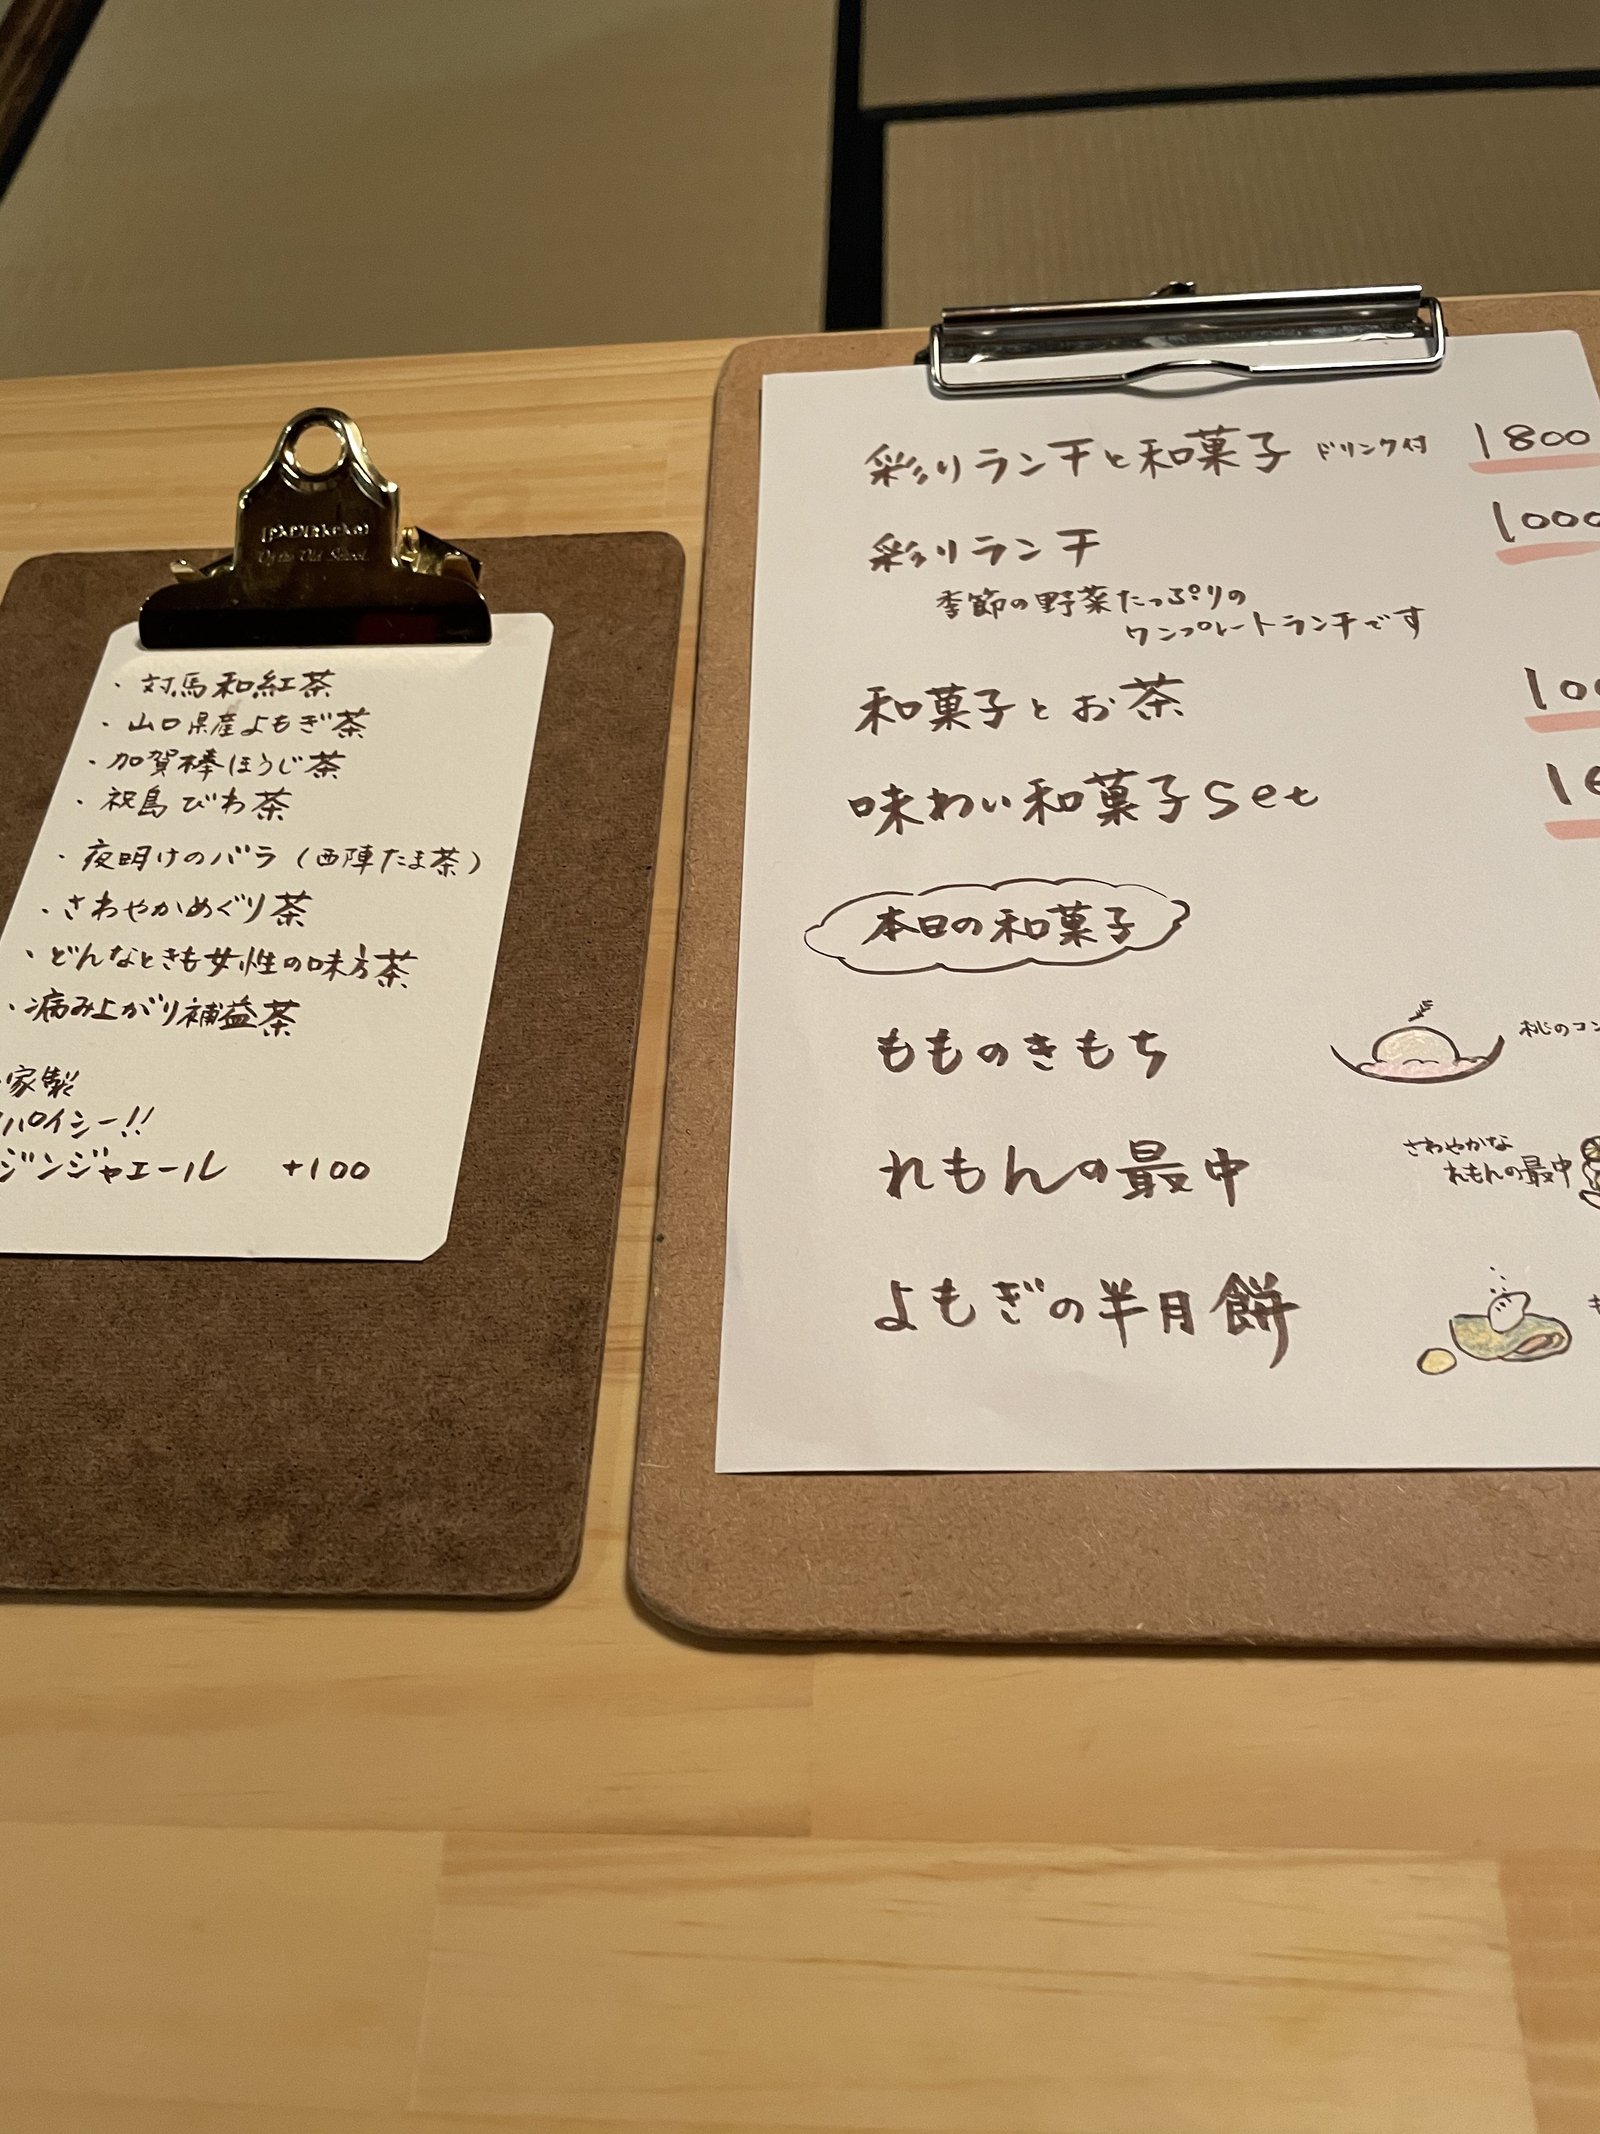 ・対馬和紅茶
・山口県産よもぎ茶
・加賀棒ほうじ茶
・祝島びわ茶
・夜明けのバラ(西陣たま茶)
・さわやかめぐり茶
・どんなときも女性の味方茶
・病み上がり補益茶
家製
パイシー!!
ジンジャエール +100
彩りランチと和菓子 ドリンク付 1800
彩りランチ 1000
季節の野菜たっぷりの
ワンプレートランチです
和菓子とお茶
味わい和菓子set
本日の和菓子
もものきもち
桃のコン
れもんの最中
さわやかな
れもんの最中
よもぎの半月餅